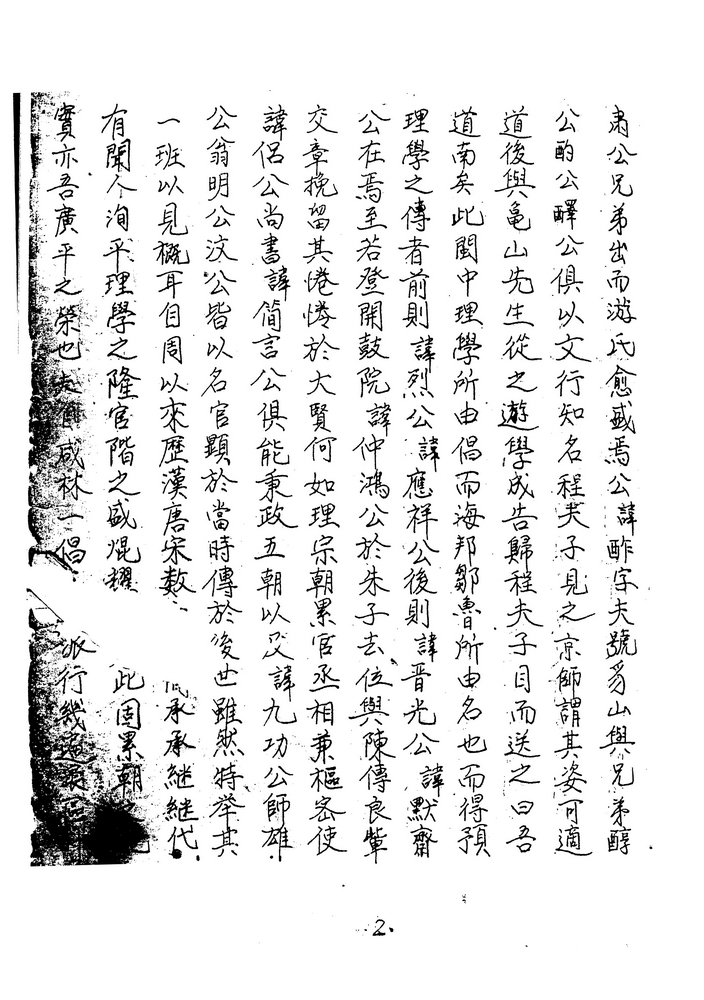 肅公兄弟出而游氏愈盛焉公諱酢字夫號豸山與兄弟醇
公酌公醳公俱以文行知名程夫子見之京師謂其姿可適
道後與龟山先生從之遊學成告歸程夫子目而送之曰吾
道南矣此閩中理學所由倡而海邦鄒魯所由名也而得預
理學之傳者前則諱烈公諱應祥公後則諱晋光公諱默齋
公在焉至若登開鼓院諱仲鴻公於朱子去位與陳傳良軰
交章挽留其惓惓於大賢何如理宗朝累官丞相兼樞宻使
諱侣公尚書諱簡言公俱能秉政五朝以及諱九功公師雄
公翁明公汶公皆以名官顯於當時傳於後世雖然特举其
一班以見概耳自周以來歷漢唐宋数 承承継継代
有聞人洵平理學之隆官階之盛焜耀 此固累朝之
實亦吾廣平之榮也 咸林一倡 派行幾
2